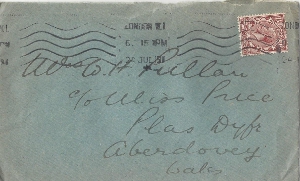 LONDON W.1
6.15 PM
24 JUL 19
Mrs W. H. Pullan
c/o Miss Price
Plas Dyfi
Aberdovey
Wales